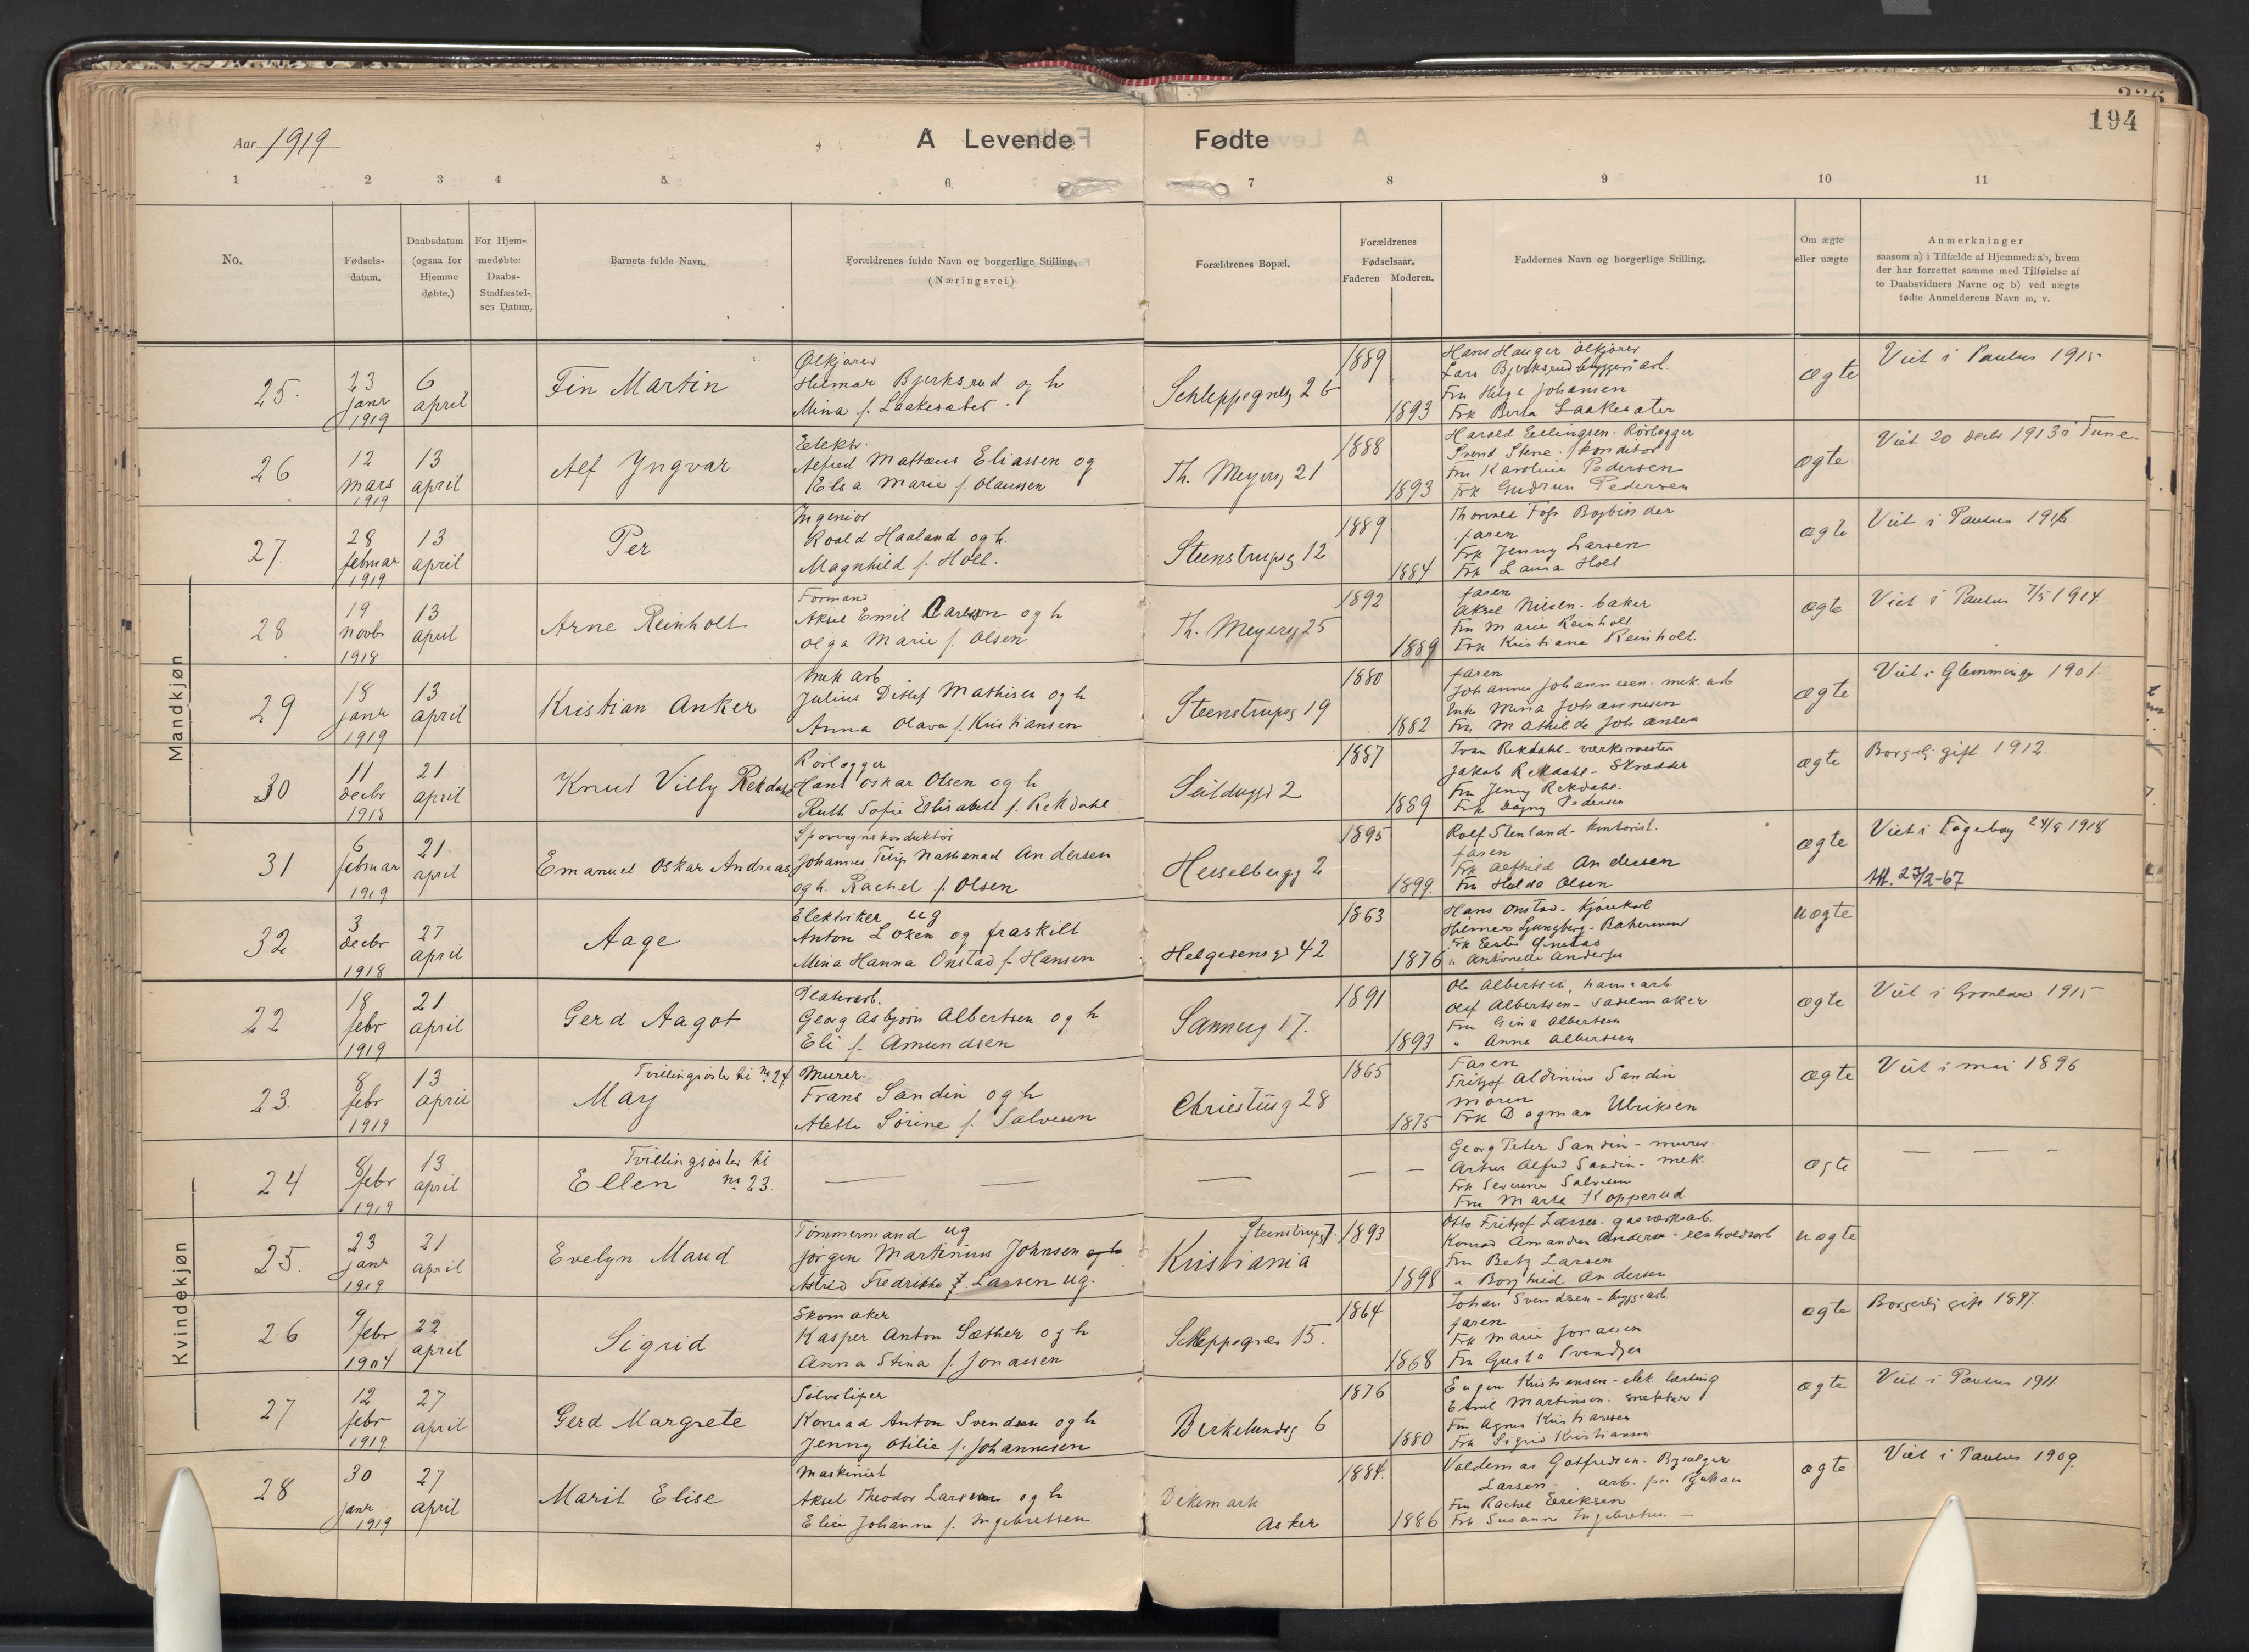 194
Aar 1919
A Levende Fødte
1 2 3 4 5 6 7 8 9 10 11
No.
Fødsels-
datum.
Daabsdatum
(ogsaa for
Hjemme
døbte.)
For Hjem-
medøbte:
Daabs-
Stadfæstel-
ses Datum.
Barnets fulde Navn.
Forældrenes fulde Navn og borgerlige Stilling.
(Næringsvei)
Forældrenes Bopæl.
Forældrenes
Fødselsaar.
Faderen Moderen.
Faddernes Navn og borgerlige Stilling.
Om ægte
eller uægte
Anmerkninger
saasom a) i Tilfælde af Hjemmedaab, hvem
der har forrettet samme med Tilføielse af
to Daabsvidners Navne og b) ved uægte
fødte Anmelderens Navn m. v.
Mandkjøn
25.
23
janr
1919
6
april
Fin Martin
Ølkjører
Hilmar Bjerksrud og h
Mina f. Laakesæter.
Schleppegrelsg 2 b
1889
1893
Hans Hauger ølkjører
Lars Bjerksrud bryggeriarb.
Fru Helga Johansen
Frk Berta Laakesæter
ægte
Viet i Paulus 1915
26
12
mars
1919
13
april
Alf Yngvar
Elektr.
Alfred Mattæus Eliassen og
Elsa Marie f. Olaussen
Th. Meyersg 21
1888
1893
Harald Ellingsen. Rørlegger
Svend Stene. Konditor
Fru Karoline Pedersen
Frk Gudrun Pedersen
ægte
Viet 20 decbr 1913 i Tune.
27.
28
februar
1919
13
april
Per
Ingeniør
Roald Haaland og h.
Magnhild f. Holt.
Steenstrupsg 12
1889
1884
Thorvald Foss Bogbinder
faren
Frk Jenny Larsen
Frk Laura Holt
ægte
Viet i Paulus 1916
28
19
novbr
1918
13
april
Arne Reinholt
Formand
Aksel Emil Carlson og h
Olga Marie f. Olsen
Th. Meyersg 25
1892
1889
faren
Aksel Nilsen. baker
Fru Marie Reinholt
Frk Kristiane Reinholt.
ægte
Viet i Paulus 7/5 1914
29
18
janr
1919
13
april
Kristian Anker
Mek arb
Julius Ditlef Mathisen og h
Anna Olava f. Kristiansen
Steenstrupsg 19
1880
1882
faren
Johannes Johannesen. mek. arb
Enke Mina Johannesen
Fru Mathilde Johansen
ægte
Viet i Glemminge 1901.
30
11
decbr
1918
21
april
Knud Villy Rekdahl
Rørlegger
Hans Oskar Olsen og h
Ruth Sofie Elisabeth f. Rekdahl
Seildugsg 2
1887
1889
Ivan Rekdahl - værksmester
Jakob Rekdahl - Skrædder
Fru Jenny Rekdahl.
Frk Dagny Pedersen
ægte
Borgerlig gift 1912.
31
6
februar
1919
21
april
Emanuel Oskar Andreas
Sporvognskonduktør
Johannes Filip Nathanael Andersen
og h. Rachel f. Olsen
Hesselbergg 2
1895
1899.
Rolf Stenland - kontorist.
faren
Frk Alfhild Andersen
Fru Hulda Olsen
ægte
Viet i Fagerborg 24/8 1918
Utt. 27/2-67
32
3
decbr
1918
27
april
Aage
Elektriker ug
Anton Loken og fraskilt
Mina Hanna Onstad f Hansen
Helgesensgt 42
1863
1876
Hans Onstad - kjørekarl
Hilmar Ljungberg - Bakersvend
Frk Ester Onstad
" Antonette Andersen
uægte
Kvindekjøn
22
18
febr
1919
21
april
Gerd Aagot
Platearb.
Georg Asbjørn Albertsen og h
Eli f. Amundsen
Sannerg 17.
1891
1893
Ole Albertsen, havnearb
Olef Albertsen - sadelmaker
Fru Gina Albertsen
" Anna Albertsen
ægte
Viet i Grønland 1915
23.
8
febr
1919
13
april
Tvillingsøster til no 24
May
Murer.
Frans Sandin og h
Alette Sørine f. Salvesen
Chriestiesg 28
1865
1875
Faren
Fritjof Aldinius Sandin
moren
Frk Dagmar Ulriksen
ægte
Viet i mai 1896
24
8
febr
1919
13
april
Tvillingsøster til
Ellen no 23.
— —
—
— —
Georg Peter Sandin - murer
Artur Alfred Sandin - mek.
Frk Severine Salvesen
Fru Marta Kopperud
ægte
— — -
25.
23
janr
1919
21
april
Evelyn Maud
Tømmermand ug
Jørgen Martinius Johnsen og h
Astrid Fredrikke f. Larsen ug.
Steenstrupsg 7.
Kristiania
1893
1898
Otto Fritjof Larsen - gasværksarb.
Konrad Amandus Andersen - renholdsarb
Fru Betzy Larsen
" Borghild Andersen
uægte
26
9
febr
1904
22
april
Sigrid
Skomaker
Kasper Anton Sæther og h
Anna Stina f. Jonassen
Schleppegrels 15.
1864
1868
Johan Svendsen - bryggearb
faren
Frk Marie Jonassen
Fru Gusta Svendsen
ægte
Borgerlig gift 1897.
27
12
febr
1919
27
april
Gerd Margrete
Sølvsliper
Konrad Anton Svendsen og h
Jenny Otilie f. Johannesen
Birkelundsg 6
1876
1880
Eugen Kristiansen - elek. lærling
Emil Martinsen. snekker
Fru Agnes Kristiansen
Frk Sigrid Kristiansen
ægte
Viet i Paulus 1911.
28
30
janr
1919
27
april
Marit Elise
Maskinist
Aksel Theodor Larsen og h
Elise Johanne f. Ingebretsen
Dikemark
Asker
1884.
1886
Valdemar Gotfredsen. Brysælger
Larsen - arb.
Fru Rachel Eriksen
Frk Susanne Ingebretsen
ægte
Viet i Paulus 1909.